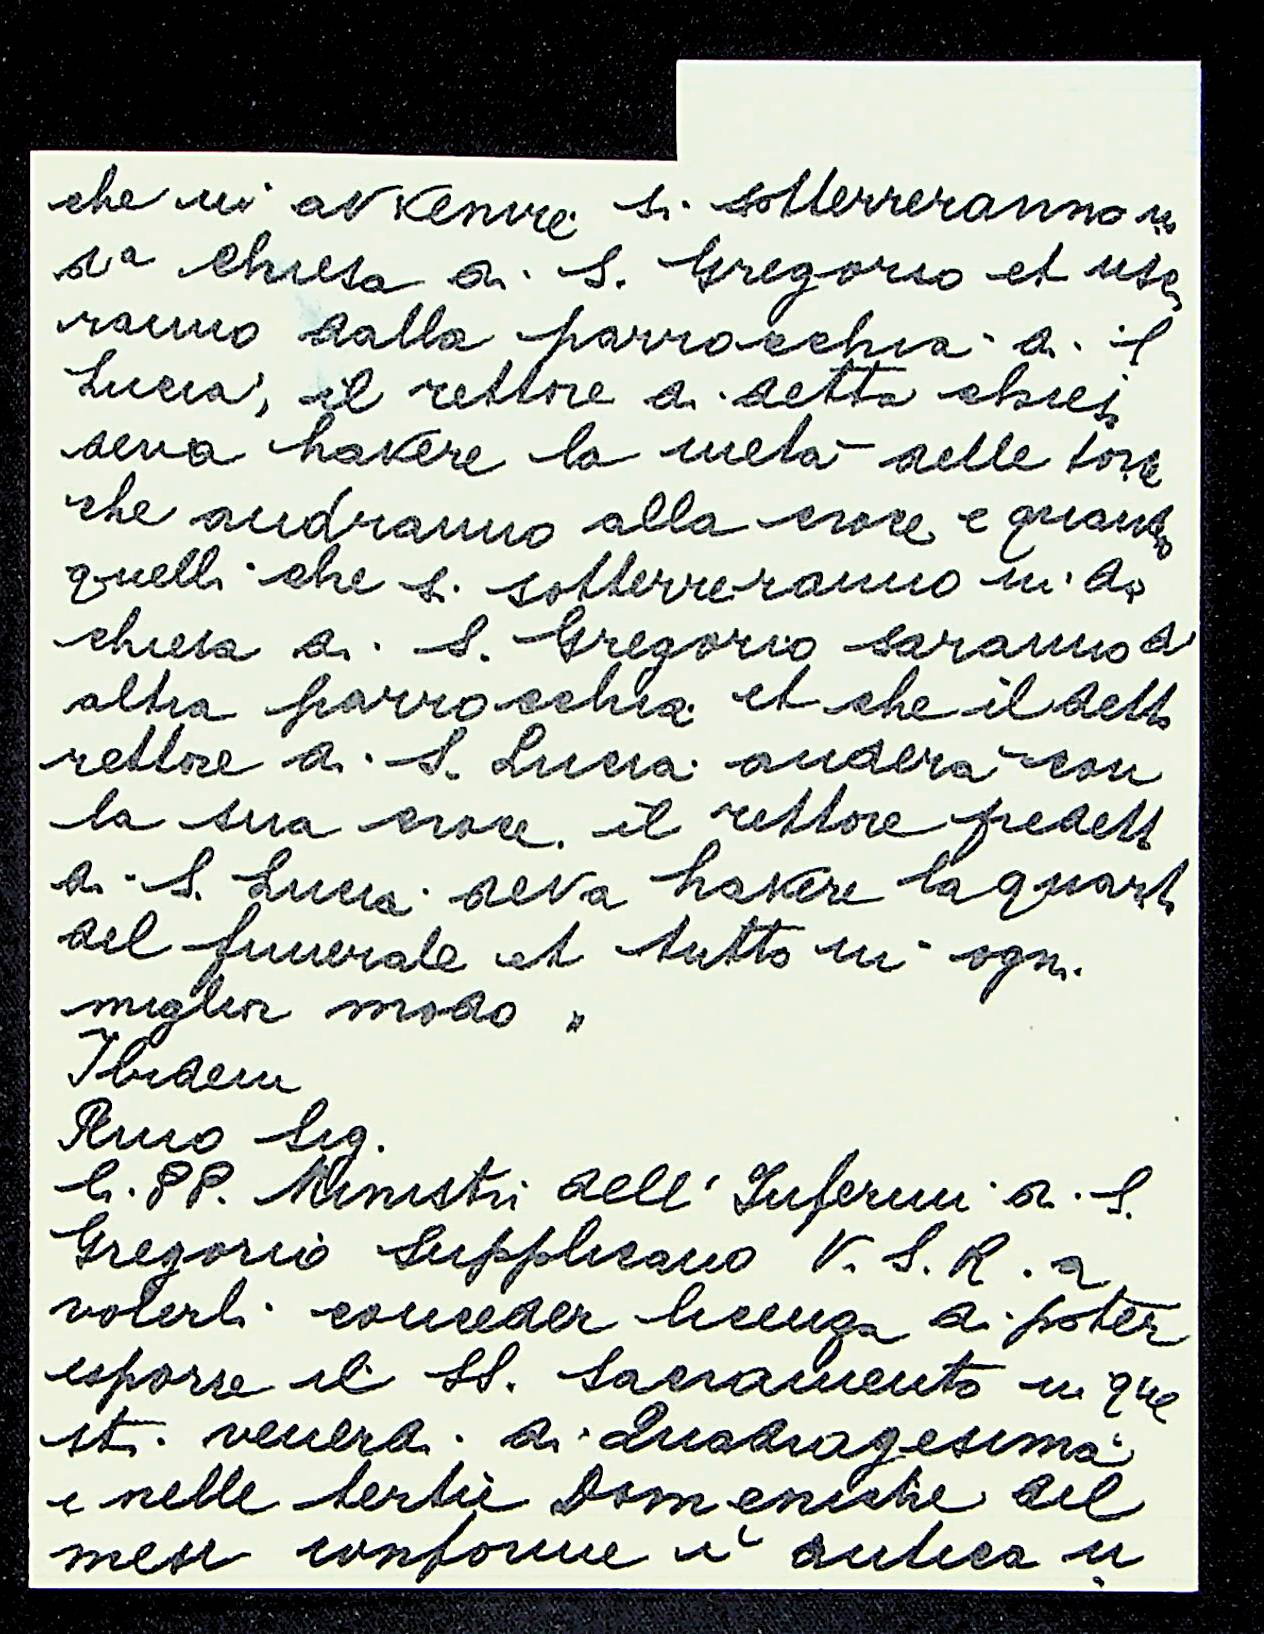 che in avvenire si sotterreranno in
da chiesa di S. Gregorio et use
ranno dalla parrocchia di S.
Lucia, il rettore di detta chies
deva havere la metà delle torce
che andranno alla croce e quando
quelli che si sotterreranno in da
chiesa di S. Gregorio saranno d'
altra parrocchia et che il detto
rettore di S. Lucia anderà con
la sua croce. il rettore predett
di S. Lucia deva havere la quart
del funerale et tutto in ogni
miglior modo "
Ibidem
Rmo Sig.
li PP. Ministri dell' Infermi di S.
Gregorio Supplicano V. S. R. a
volerli conceder licenza di poter
esporre il SS. Sacramento in que
sti venerdi di Quadragesima
e nelle tertie Domeniche del
mese conforme è antica